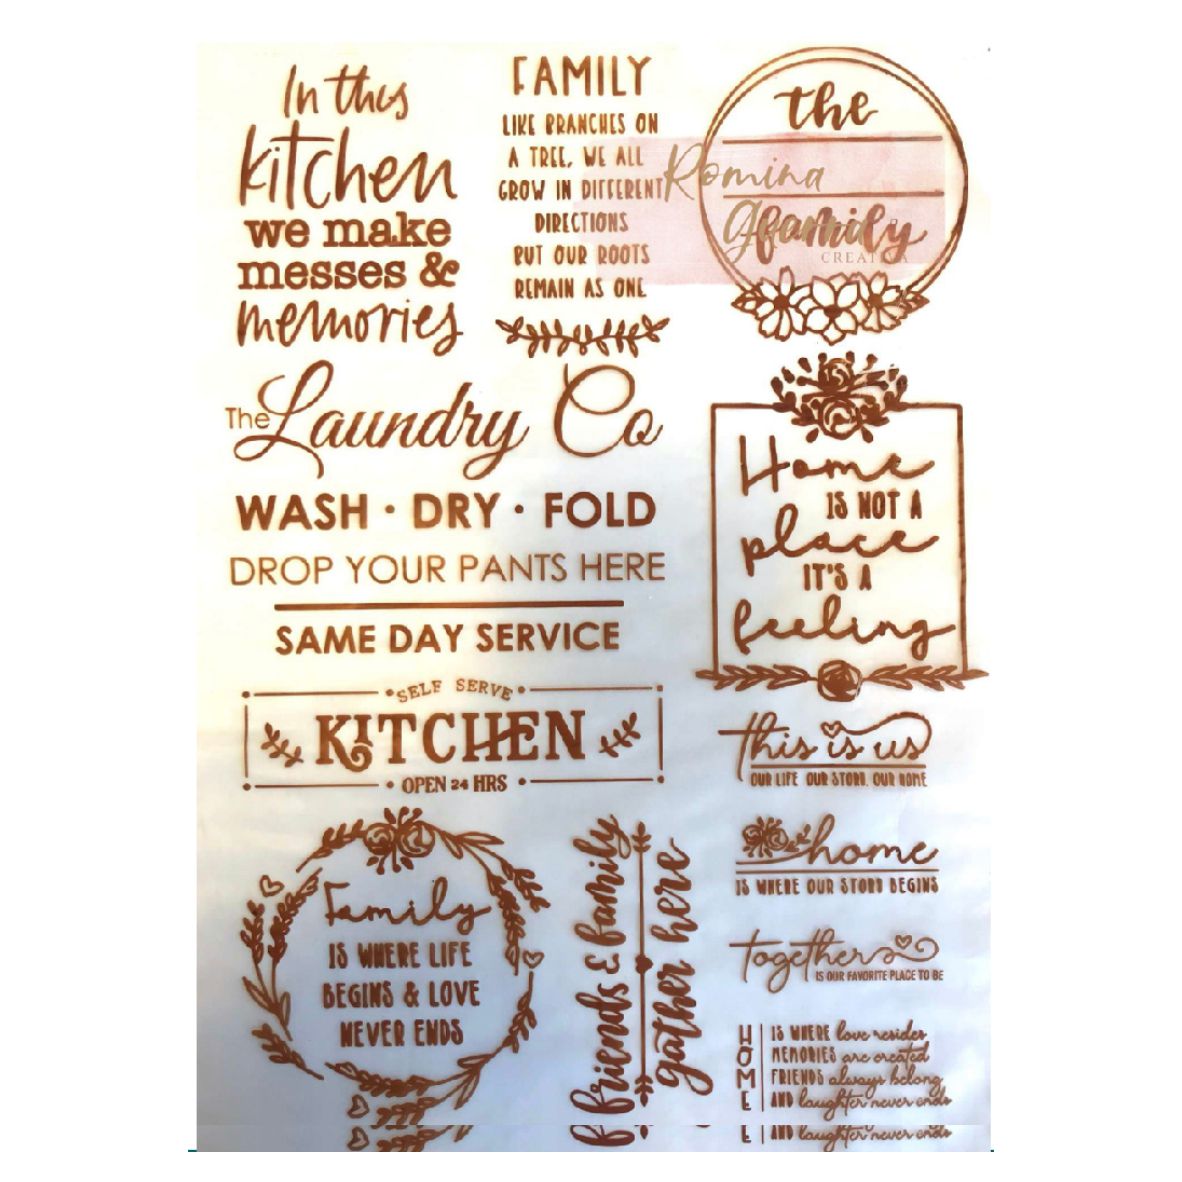 In this
kitchen
we make
messes &
memories
FAMILY
LIKE BRANCHES ON
A TREE, WE ALL
GROW IN DIFFERENT
DIRECTIONS
BUT OUR ROOTS
REMAIN AS ONE
the
family
Romina
CREATIVA
The Laundry Co
WASH · DRY · FOLD
DROP YOUR PANTS HERE
SAME DAY SERVICE
Home
IS NOT A
place
IT'S A
feeling
SELF SERVE
KITCHEN
OPEN 24 HRS
this is us
OUR LIFE OUR STORY. OUR HOME
home
IS WHERE OUR STORY BEGINS
together
IS OUR FAVORITE PLACE TO BE
Family
IS WHERE LIFE
BEGINS & LOVE
NEVER ENDS
friends & family
gather here
HOME
IS WHERE love resides
MEMORIES are created
FRIENDS always belong
AND laughter never ends
E AND laughter never ends